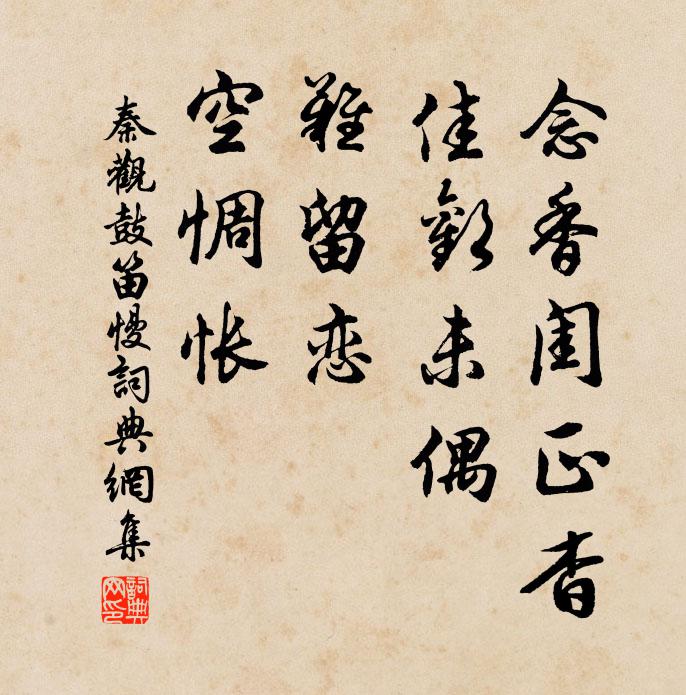 念香闺正杳
佳歡未偶
難留恋
空惆怅
秦觀鼓笛慢詞典網集
詞典网印